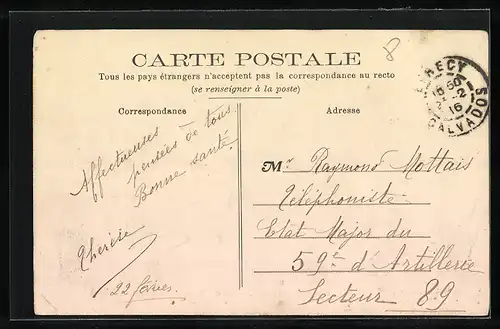 8
CARTE POSTALE
Tous les pays étrangers n'acceptent pas la correspondance au recto
(se renseigner à la poste)
Correspondance
Adresse
EVRECY
18 30
2
16
CALVADOS
Affectueuses
pensées de tous.
Bonne santé.
Thérèse
22 février.
Mr Raymond Mottais
Téléphoniste
Etat Major du
59e d'Artillerie
Secteur 89.